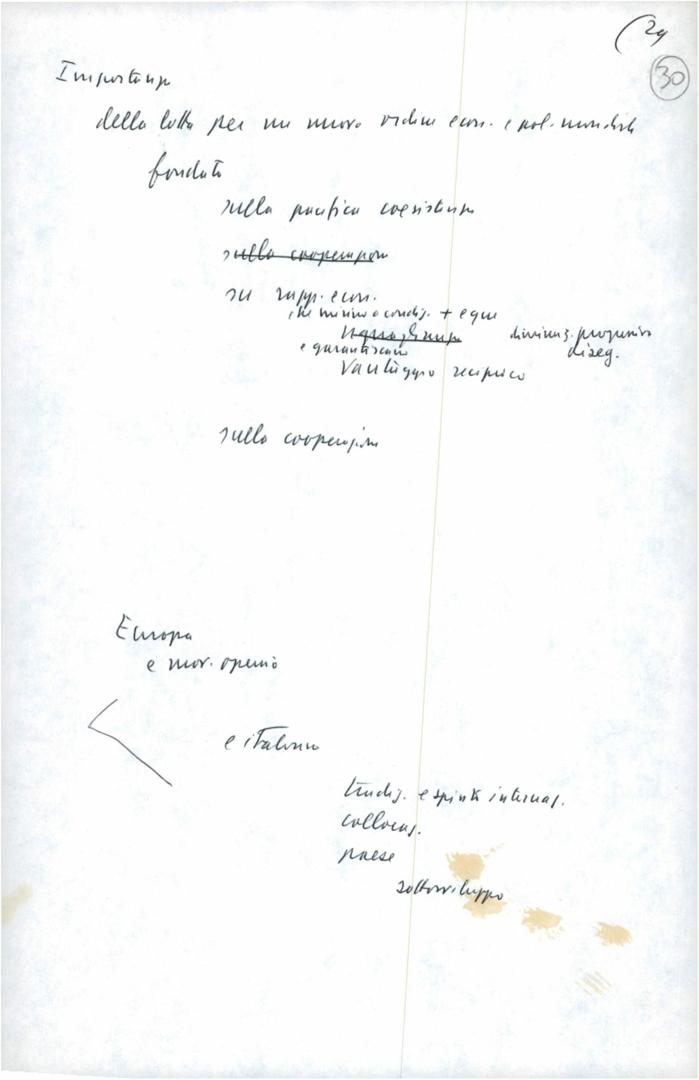 (29
30
Importanza
della lotta per un nuovo ordine econ. e pol. mondiale
fondato
sulla pacifica coesistenza
sulla cooperazione
su rapp. econ.
che mirino a condiz. + eque
Uguaglianza diminuz. progressiva
e garantiscano diseg.
Vantaggio reciproco
sulla cooperazione
Europa
e mov. operaio
e italiano
tradiz. e spinte internaz.
collocaz.
paese
sottosviluppo